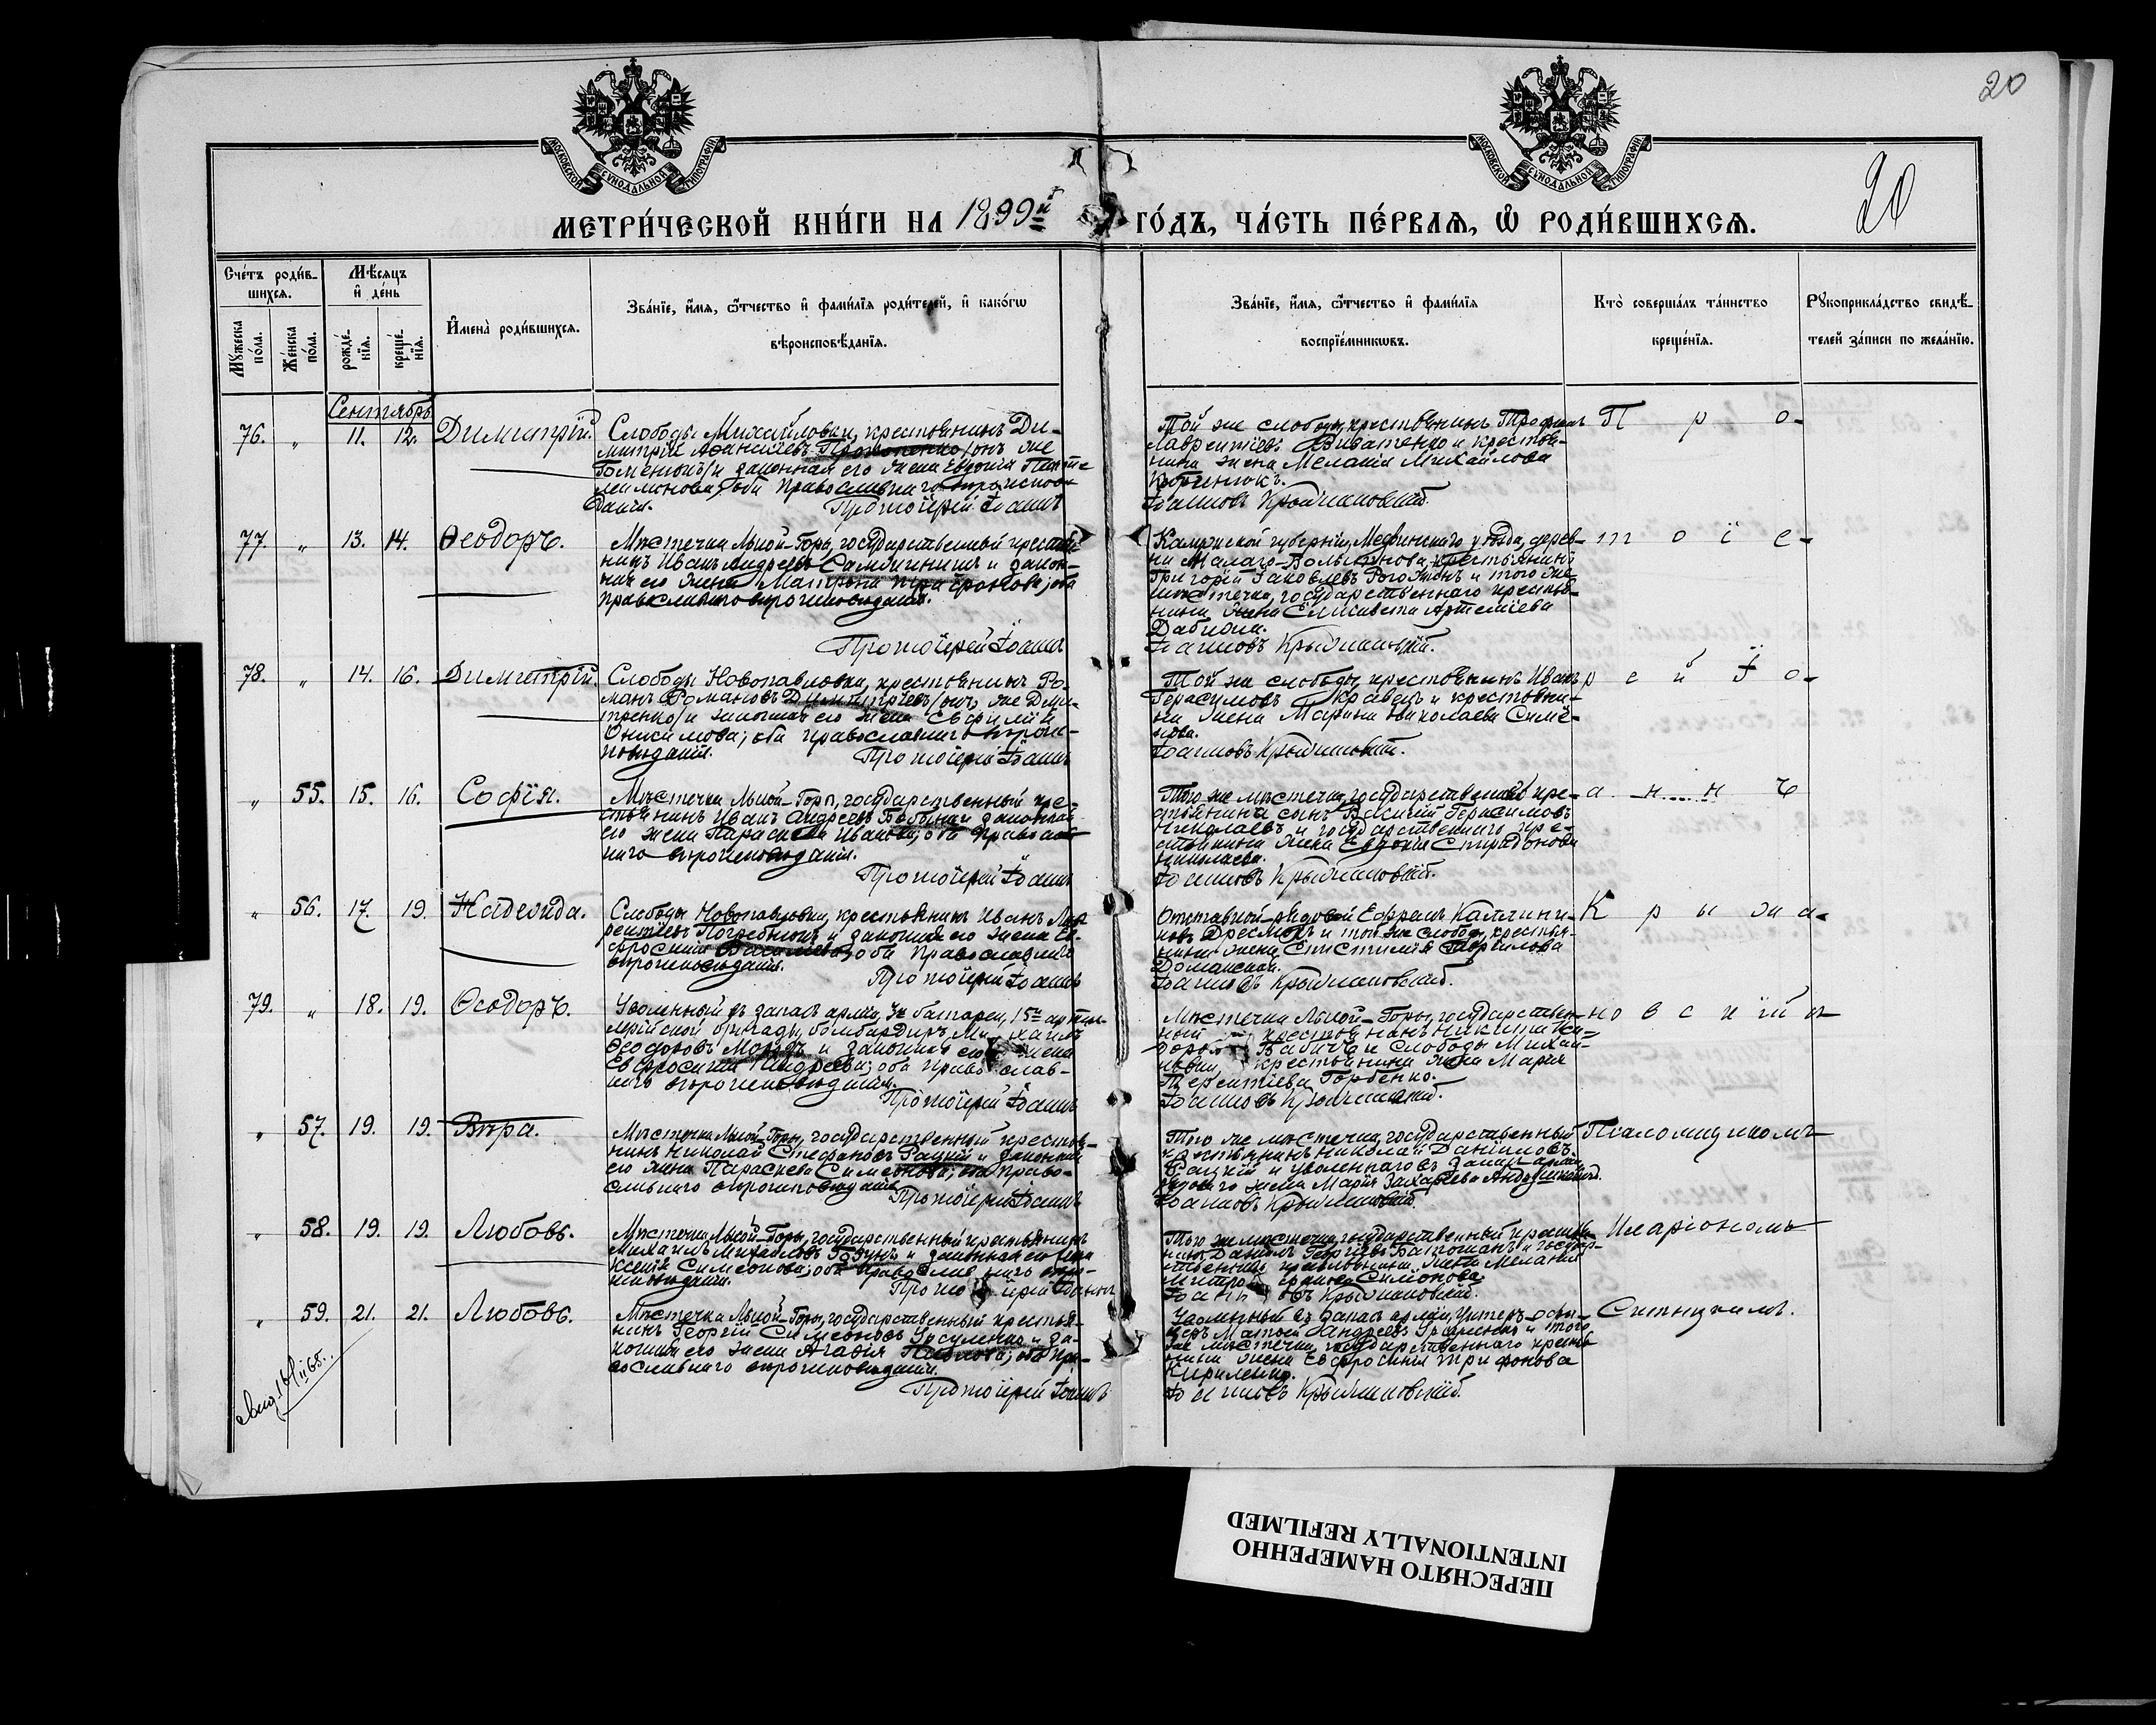 20
20
МОСКОВСКОЙ СУНОДАЛЬНОЙ ТИПОГРАФІИ
МОСКОВСКОЙ СУНОДАЛЬНОЙ ТИПОГРАФІИ
МЕТРИ́ЧЕСКОЙ КНИ́ГИ НА 1899й ГО́ДЪ, ЧА́СТЬ ПЕ́РВАѦ, Ѡ РОДИ́ВШИХСѦ.
Сче́тъ роди́вшихся.
Му́жеска по́ла.
Же́нска по́ла.
Мѣ́сяцъ и де́нь
рожде́нїя.
креще́нїя.
И҆мена̀ роди́вшихся.
Зва́нїе, и҆́мя, ѻ҆́тчество и҆ фами́лїя роди́телей, и҆ како́гѡ
вѣроисповѣ́данїя.
Зва́нїе, и҆́мя, ѻ҆́тчество и҆ фами́лїя
воспрїе́мникѡвъ.
Кто̀ соверша́лъ та́инство
креще́нїя.
Рꙋкоприкла́дство свидѣ́-
телей за́писи по жела́нїю.
Сентябрь
76. " 11. 12. Димитрій.
Слободы Михайловки, крестьянинъ Ди-
митрій Аѳанасіевъ /онъ же
и законная его жена Евдокія
оба православнаго вѣроисповѣ-
данія. Протоіерей Іоаннъ
Той же слободы, крестьянинъ Трофимъ
Лаврентіевъ и крестья-
нина жена Меланія Михайлова
Іоанновъ Крыжановскій.
П р о-
77. " 13. 14. Ѳеодоръ.
Мѣстечка Лысой-Горы, государственный крестья-
нинъ Иванъ Андреевъ и закон-
ная его жена Матрона Трифонова; оба
православнаго вѣроисповѣданія.
Протоіерей Іоаннъ
губерніи, уѣзда, дерев-
ни крестьянинъ
Григорій Іаковлевъ и того же
мѣстечка, государственнаго крестья-
нина жена Елисавета Артеміева
Іоанновъ Крыжановскій.
т о і е-
78. " 14. 16. Димитрій.
Слободы Новопавловки, крестьянинъ Ро-
манъ Романовъ Димитріевъ /онъ же Дми-
тренко/ и законная его жена
Онисимова; оба православнаго вѣроис-
повѣданія. Протоіерей Іоаннъ
Той же слободы, крестьянинъ Иванъ
Герасимовъ Кравецъ и крестьяни-
на жена Марина Николаева
Іоанновъ Крыжановскій.
р е й І о-
" 55. 15. 16. Софія.
Мѣстечка Лысой-Горы, государственный кре-
стьянинъ Иванъ Андреевъ и законная
его жена Параскева Иванова; оба православ-
наго вѣроисповѣданія.
Протоіерей Іоаннъ
Того же мѣстечка, государственнаго кре-
стьянина сынъ Василій Герасимовъ
Николаевъ и государственнаго кре-
стьянина жена Евдокія Спиридонова
Николаева.
Іоанновъ Крыжановскій.
а н н ъ
" 56. 17. 19. Надежда.
Слободы Новопавловки, крестьянинъ Иванъ Лав-
рентіевъ Погребнюкъ и законная его жена Ев-
фросинія оба православнаго
вѣроисповѣданія. Протоіерей Іоаннъ
Отставной рядовой Ефремъ
и той же слободы, крестья-
нина жена Гавріилова
Доманская.
Іоанновъ Крыжановскій.
К р ы ж а-
79. " 18. 19. Ѳеодоръ.
Уволенный въ запасъ арміи, батареи, 15й артил-
лерійской бригады, бомбардиръ Михаилъ
Ѳеодоровъ и законная его жена
Евфросинія Андреева; оба православ-
наго вѣроисповѣданія.
Протоіерей Іоаннъ
Мѣстечка Лысой-Горы, государствен-
ный крестьянинъ Никита
Бабичъ и слободы Михай-
ловки, крестьянина жена Марія
Терентіева Горбенко.
Іоанновъ Крыжановскій.
но в с к ій и
" 57. 19. 19. Вѣра.
Мѣстечка Лысой-Горы, государственный крестья-
нинъ Николай Стефановъ и законная
его жена Параскева Симеонова; оба право-
славнаго вѣроисповѣданія.
Протоіерей Іоаннъ
Того же мѣстечка, государственный
крестьянинъ Николай Даніиловъ
и уволеннаго въ запасъ арміи
рядового жена Марія Захаріева
Іоанновъ Крыжановскій.
Псаломщикомъ
" 58. 19. 19. Любовь.
Мѣстечка Лысой-Горы, государственный крестьянинъ
Михаилъ Михайловъ и законная его жена
Ксенія Симеонова; оба православнаго вѣро-
исповѣданія. Протоіерей Іоаннъ
Того же мѣстечка, государственный крестья-
нинъ Даніилъ Георгіевъ и государ-
ственнаго крестьянина жена Меланія
Митрофанова Симонова.
Іоанновъ Крыжановскій.
Иларіономъ
" 59. 21. 21. Любовь.
Мѣстечка Лысой-Горы, государственный крестья-
нинъ Георгій Симеоновъ Урсуленко и за-
конная его жена Агафія Павлова; оба пра-
вославнаго вѣроисповѣданія.
Протоіерей Іоаннъ
Уволенный въ запасъ арміи, унтеръ-офи-
церъ Матѳей Андреевъ и того
же мѣстечка, государственнаго крестья-
нина жена Евфросинія Трифонова
Кириленко.
Іоанновъ Крыжановскій.
Ситницкимъ.
ПЕРЕСНЯТО НАМЕРЕННО
INTENTIONALLY REFILMED